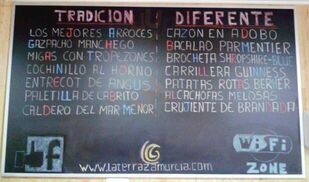 TRADICION
LOS MEJORES ARROCES
GAZPACHO MANCHEGO
MIGAS CON TROPEZONES
COCHINILLO AL HORNO
ENTRECOT DE ANGUS
PALETILLA DE CABRITO
CALDERO DEL MAR MENOR
DIFERENTE
CAZON EN ADOBO
BACALAO PARMENTIER
BROCHETA SHROPSHIRE-BLUE
CARRILLERA GUINNESS
PATATAS ROTAS
ALCACHOFAS MELOSAS
CRUJIENTE DE BRANDADA
f
www.laterrazamurcia.com
Wi Fi
ZONE